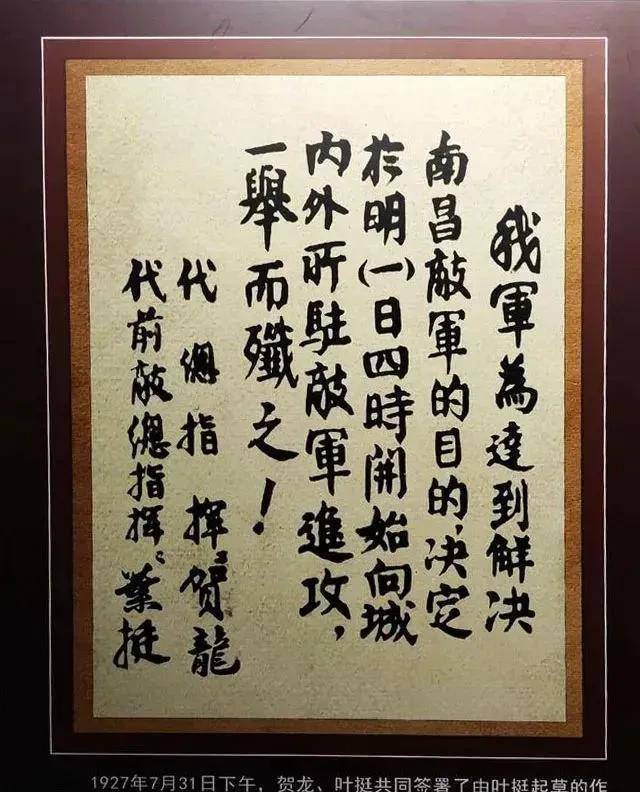 我軍為達到解决
南昌敵軍的目的，决定
於明(一)日四時開始向城
内外所駐敵軍進攻，
一舉而殲之！
代總指揮：贺龍
代前敵總指揮：葉挺
1927年7月31日下午，贺龙、叶挺共同签署了由叶挺起草的作